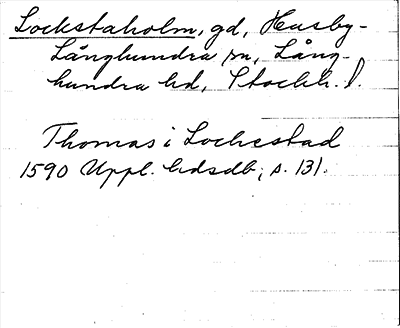 Lockstaholm, gd, Husby-
Långhundra sn, Lång-
hundra hd, Stockh. l.
Thomas i Lockestad
1590 Uppl. hdsdb; s. 131.